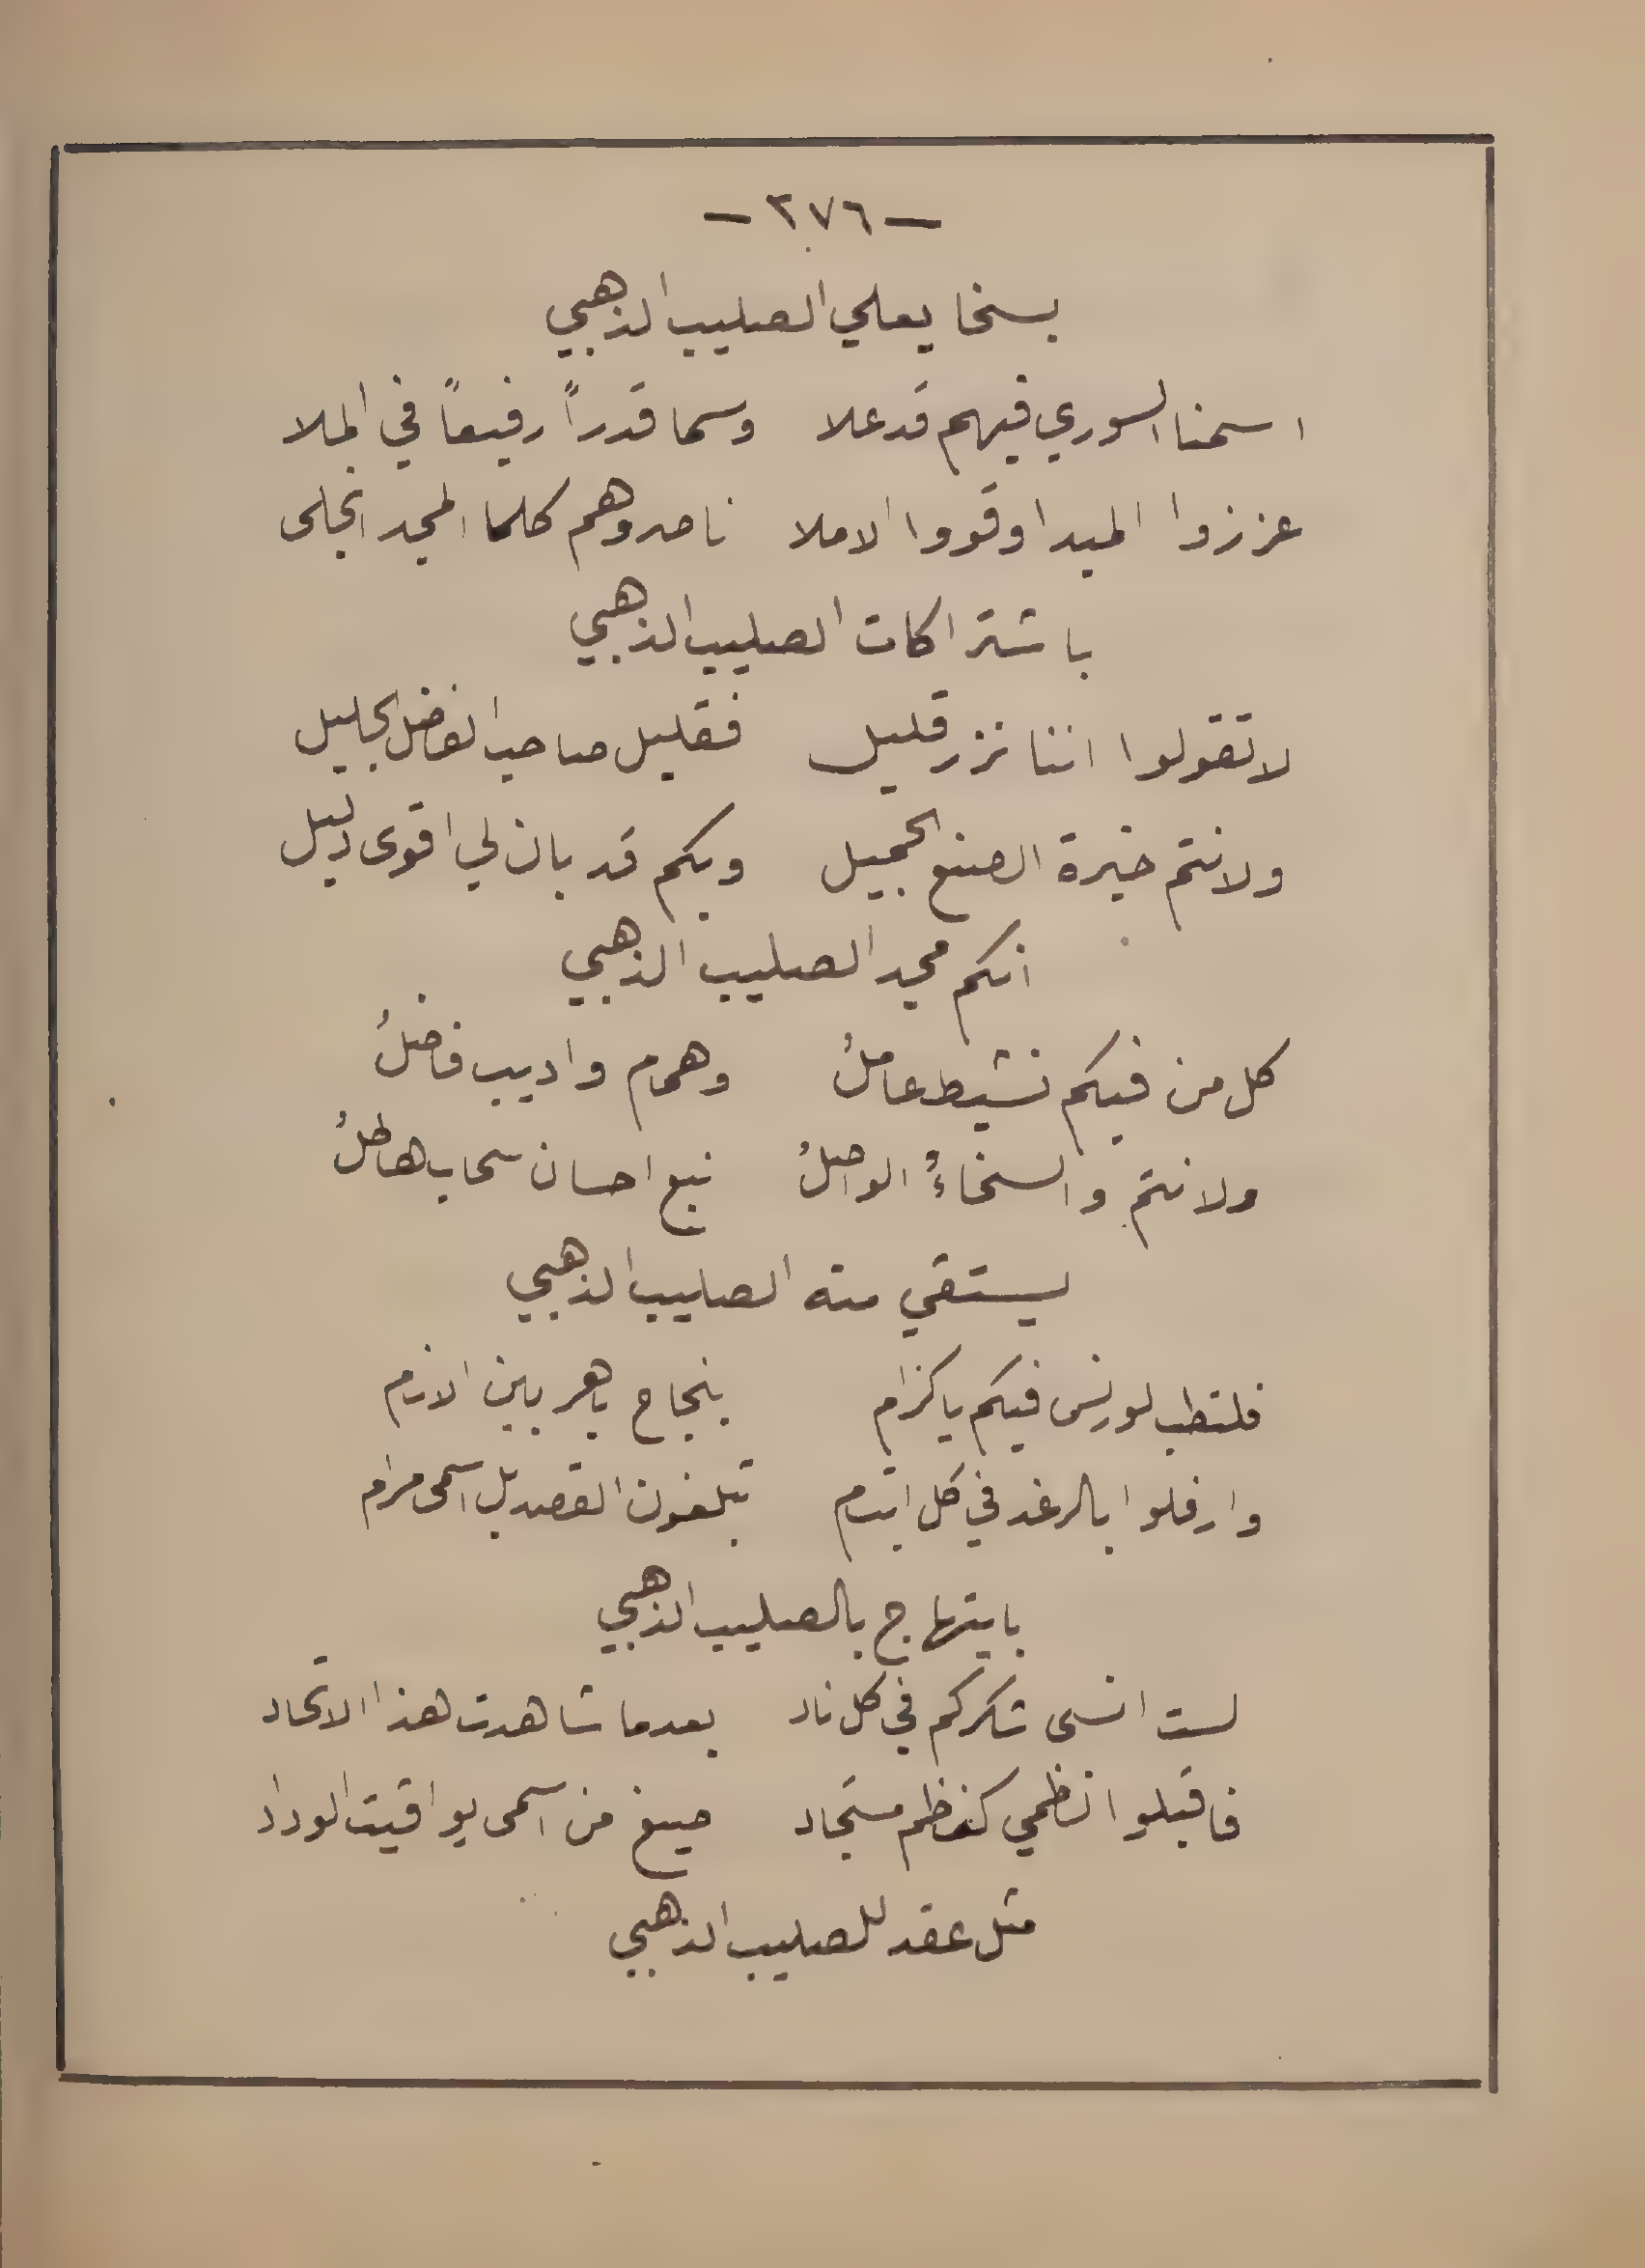 — ٢٧٦ —
بسخا يعلي الصليب الذهبي
اسمنا السوري فيهم قد علا وسما قدراً رفيعاً في الملا
عززوا المبدا وقووا الاملا ناصروهم كلما المجد انجلى
باشتراكات الصليب الذهبي
لا تقولوا اننا نزر قليل فقليل صاحب الفضل الجليل
ولانتم خيرة الصنع الجميل وبكم قد بان لي اقوى دليل
انكم مجد الصليب الذهبي
كل من فيكم نشيط عاملُ وهمام واديب فاضلُ
ولانتم والسخاءُ الواصلُ نبع احسان سحاب هاطلُ
يستقي منه الصليب الذهبي
فلتطب لورنس فيكم يا كرام بنجاح باهر بين الانام
وارفلوا بالرغد في كل ابتسام تبلغون القصد بل اسمى مرام
بابتهاج بالصليب الذهبي
لست انسى شكركم في كل ناد بعدما شاهدت هذا الاتحاد
فاقبلوا نظمي كنظم مستجاد صيغ من اسمى يواقيت الوداد
مثل عقد للصليب الذهبي